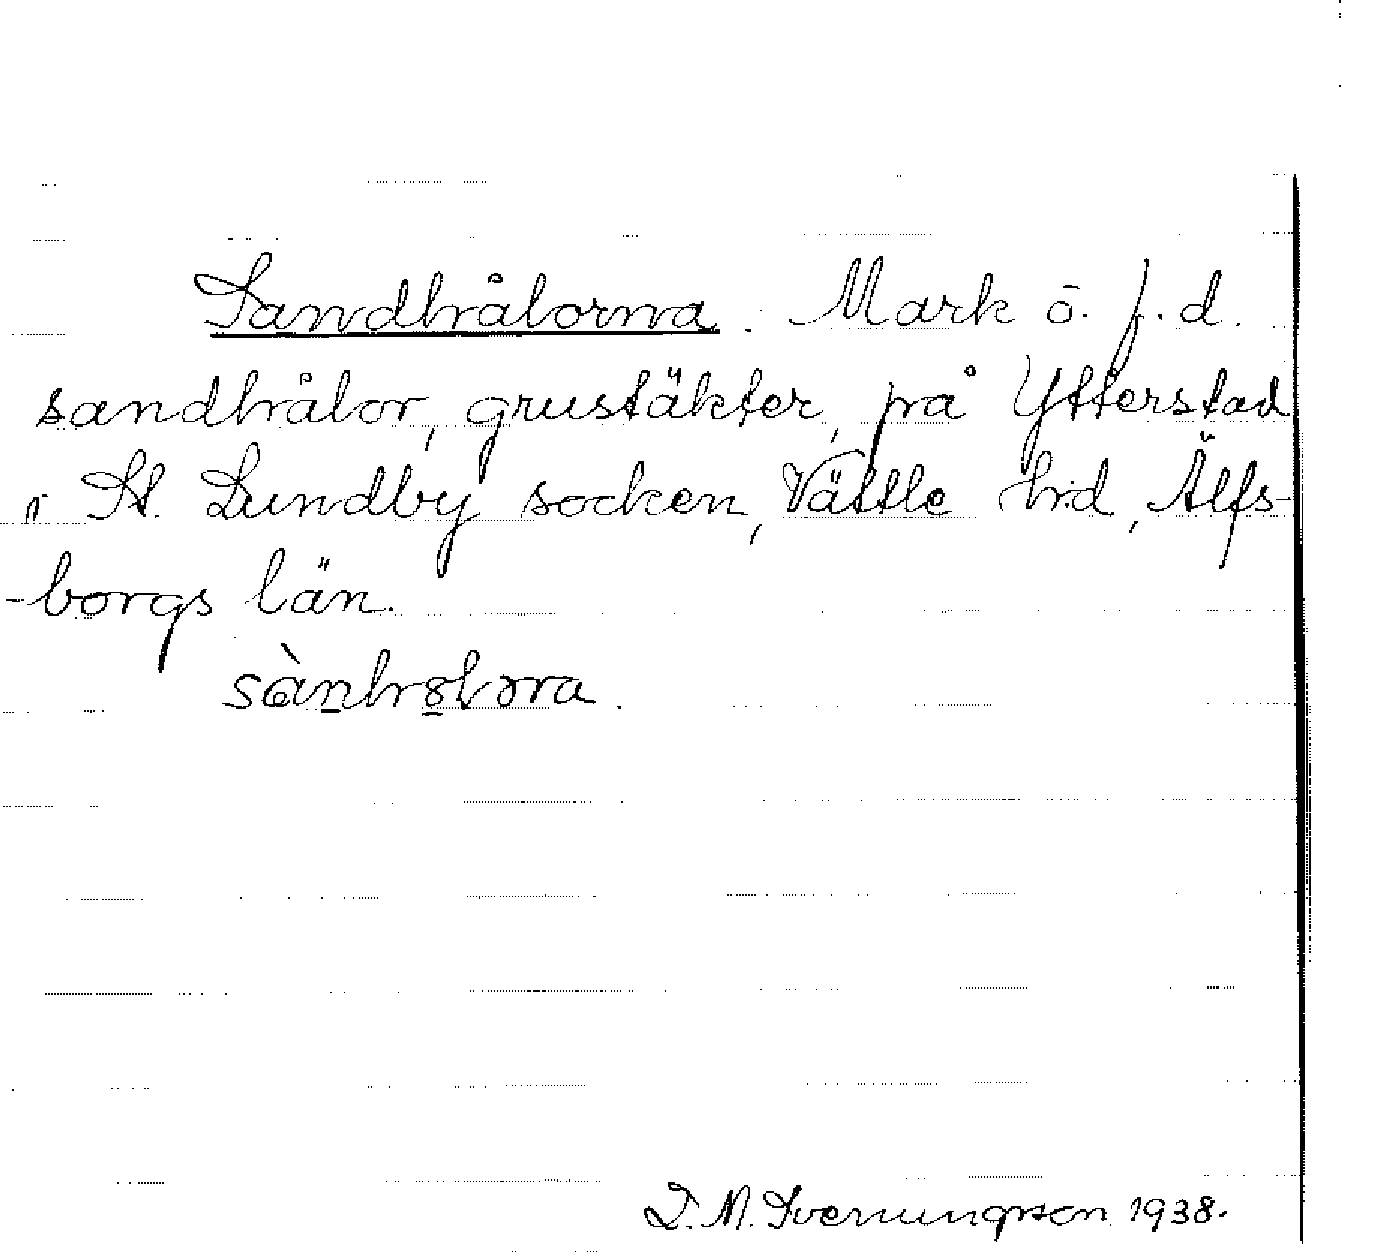 Sandhålorna. Mark o. f.d.
sandhålor, grustäkter, på Ytterstad
i St. Lundby socken, Vättle hd, Älfs-
-borgs län.
1938.